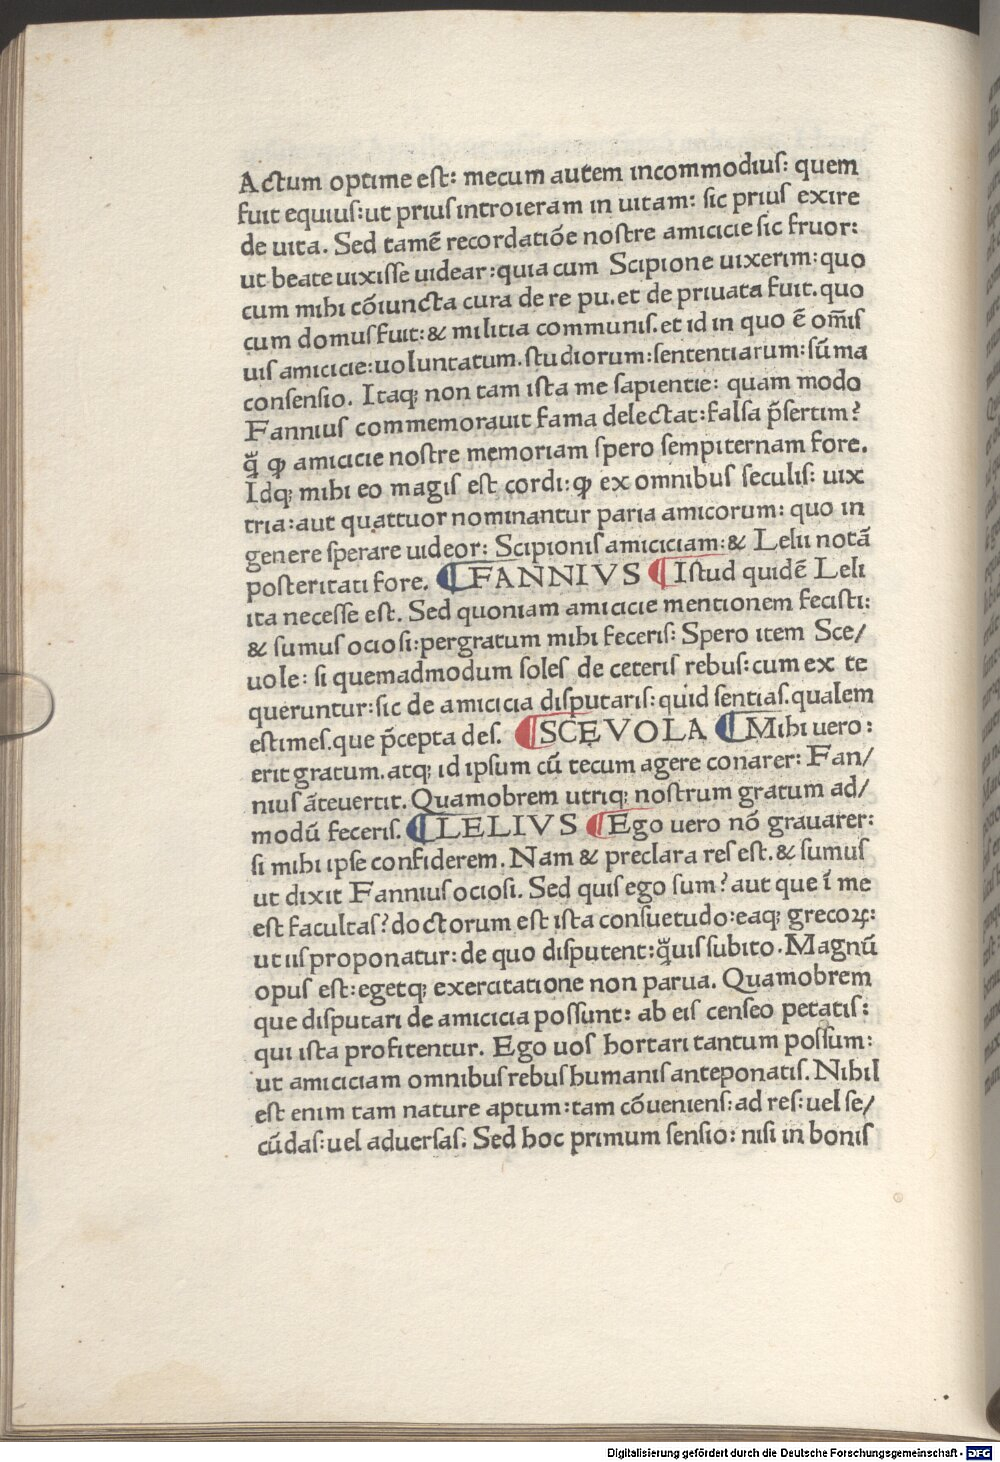 Actum optime eſt: mecum autem incommodiuſ: quem
fuit equiuſ:ut priuſ introieram in uitam: ſic priuſ exire
de uita. Sed tamē recordatiōe noſtre amicicie ſic fruor:
ut beate uixiſſe uidear:quia cum Scipione uixerim:quo
cum mihi cōiuncta cura de re pu.et de priuata fuit.quo
cum domuſ fuit:& militia communiſ.et id in quo ē om̄iſ
uiſ amicicie:uoluntatum.ſtudiorum:ſententiarum:ſūma
conſenſio. Itaqꝫ non tam iſta me ſapientie: quam modo
Fanniuſ commemorauit fama delectat:falſa p̄ſertim?
q̄ ꝙ amicicie noſtre memoriam ſpero ſempiternam fore.
Idqꝫ mihi eo magiſ eſt cordi:ꝙ ex omnibuſ ſeculiſ: uix
tria:aut quattuor nominantur paria amicorum: quo in
genere ſperare uideor: Scipioniſ amiciciam:& Lelii notā
poſteritati fore. ¶FANNIVS ¶Iſtud quidē Leli
ita neceſſe eſt. Sed quoniam amicicie mentionem feciſti:
& ſumuſ ocioſi:pergratum mihi feceriſ: Spero item Sce/
uole: ſi quemadmodum ſoleſ de ceteriſ rebuſ:cum ex te
queruntur:ſic de amicicia diſputariſ:quid ſentiaſ.qualem
eſtimeſ.que p̄cepta deſ. ¶SCEVOLA ¶Mihi uero:
erit gratum.atqꝫ id ipſum cū tecum agere conarer: Fan/
niuſ āteuertit. Quamobrem utriqꝫ noſtrum gratum ad/
modū feceriſ. ¶LELIVS ¶Ego uero nō grauarer:
ſi mihi ipſe confiderem. Nam & preclara reſ eſt.& ſumuſ
ut dixit Fanniuſ ocioſi. Sed quiſ ego ſum? aut que ī me
eſt facultaſ? doctorum eſt iſta conſuetudo:eaqꝫ grecoꝝ:
ut iiſ proponatur: de quo diſputent:q̄uiſ ſubito. Magnū
opuſ eſt:egetqꝫ exercitatione non parua. Quamobrem
que diſputari de amicicia poſſunt: ab eiſ cenſeo petatiſ:
qui iſta profitentur. Ego uoſ hortari tantum poſſum:
ut amiciciam omnibuſ rebuſ humaniſ anteponatiſ. Nihil
eſt enim tam nature aptum:tam cōuenienſ:ad reſ:uel ſe/
cūdaſ:uel aduerſaſ. Sed hoc primum ſenſio: niſi in boniſ
Digitalisierung gefördert durch die Deutsche Forschungsgemeinschaft - DFG